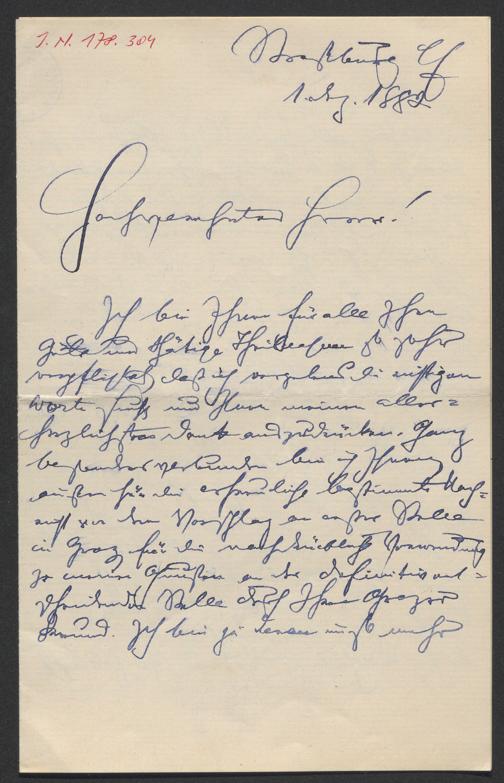 J. N. 178.304
Straßburg
1. Dez. 1882
Hochverehrter Herr!
Ich bin Ihnen für alle Ihre
Güte und thätige Theilnahme so sehr
verpflichtet, daß ich vergebens die richtigen
Worte suche, um Ihnen meinen aller-
herzlichsten Dank auszudrücken. Ganz
besonders verbunden bin ich Ihnen
außer für die erfreuliche bestimmte Nach-
richt von dem Vorschlag an erster Stelle
in Graz für die nachdrückliche Verwendung
zu meinen Gunsten an der definitiv ent-
scheidenden Stelle durch Ihren Grazer
Freund. Ich bin ja nicht mehr